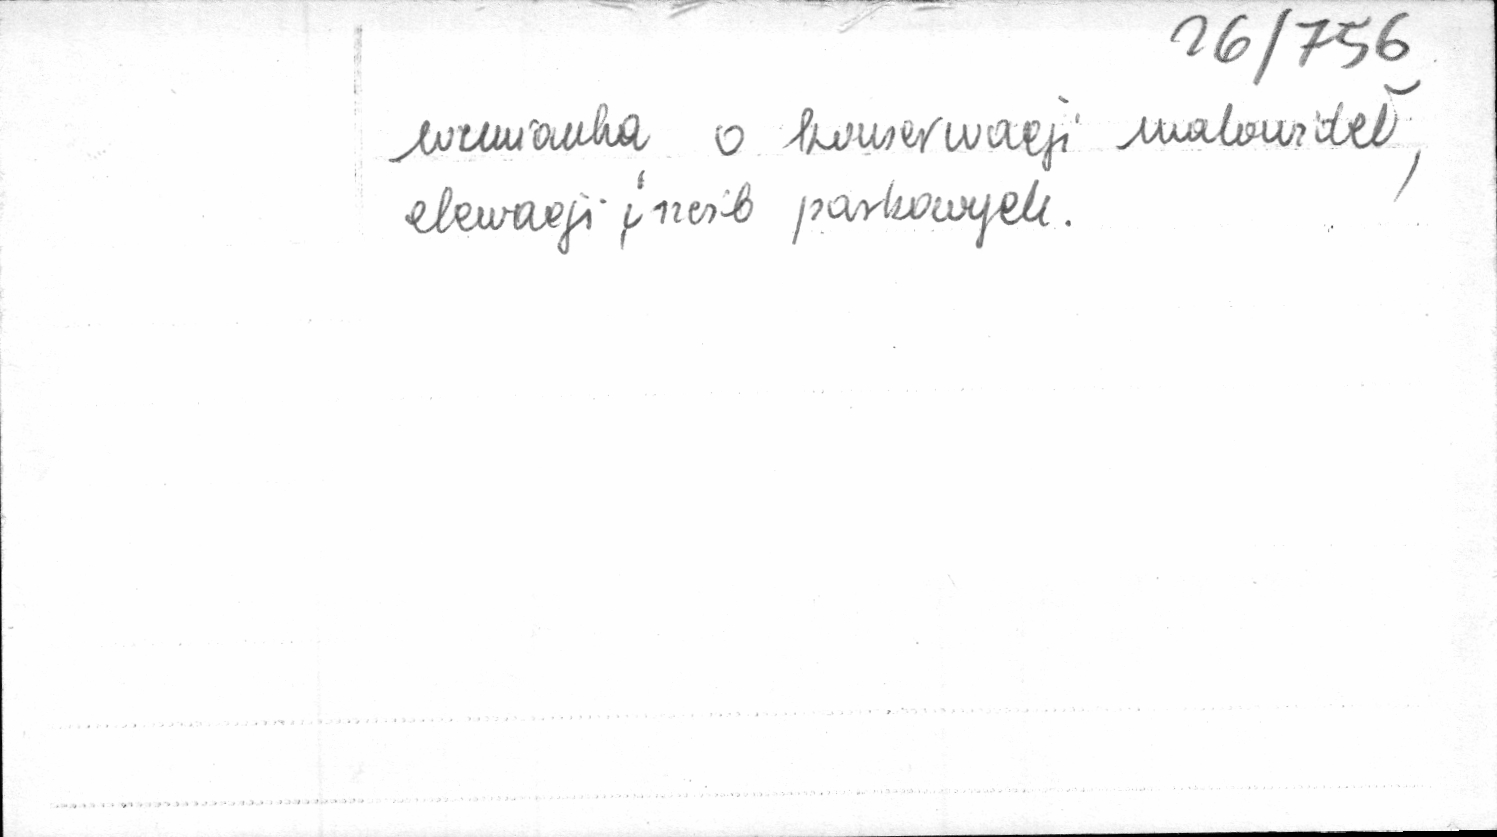 26/756
wzmianka o konserwacji malowideł,
elewacji i rzeźb parkowych.